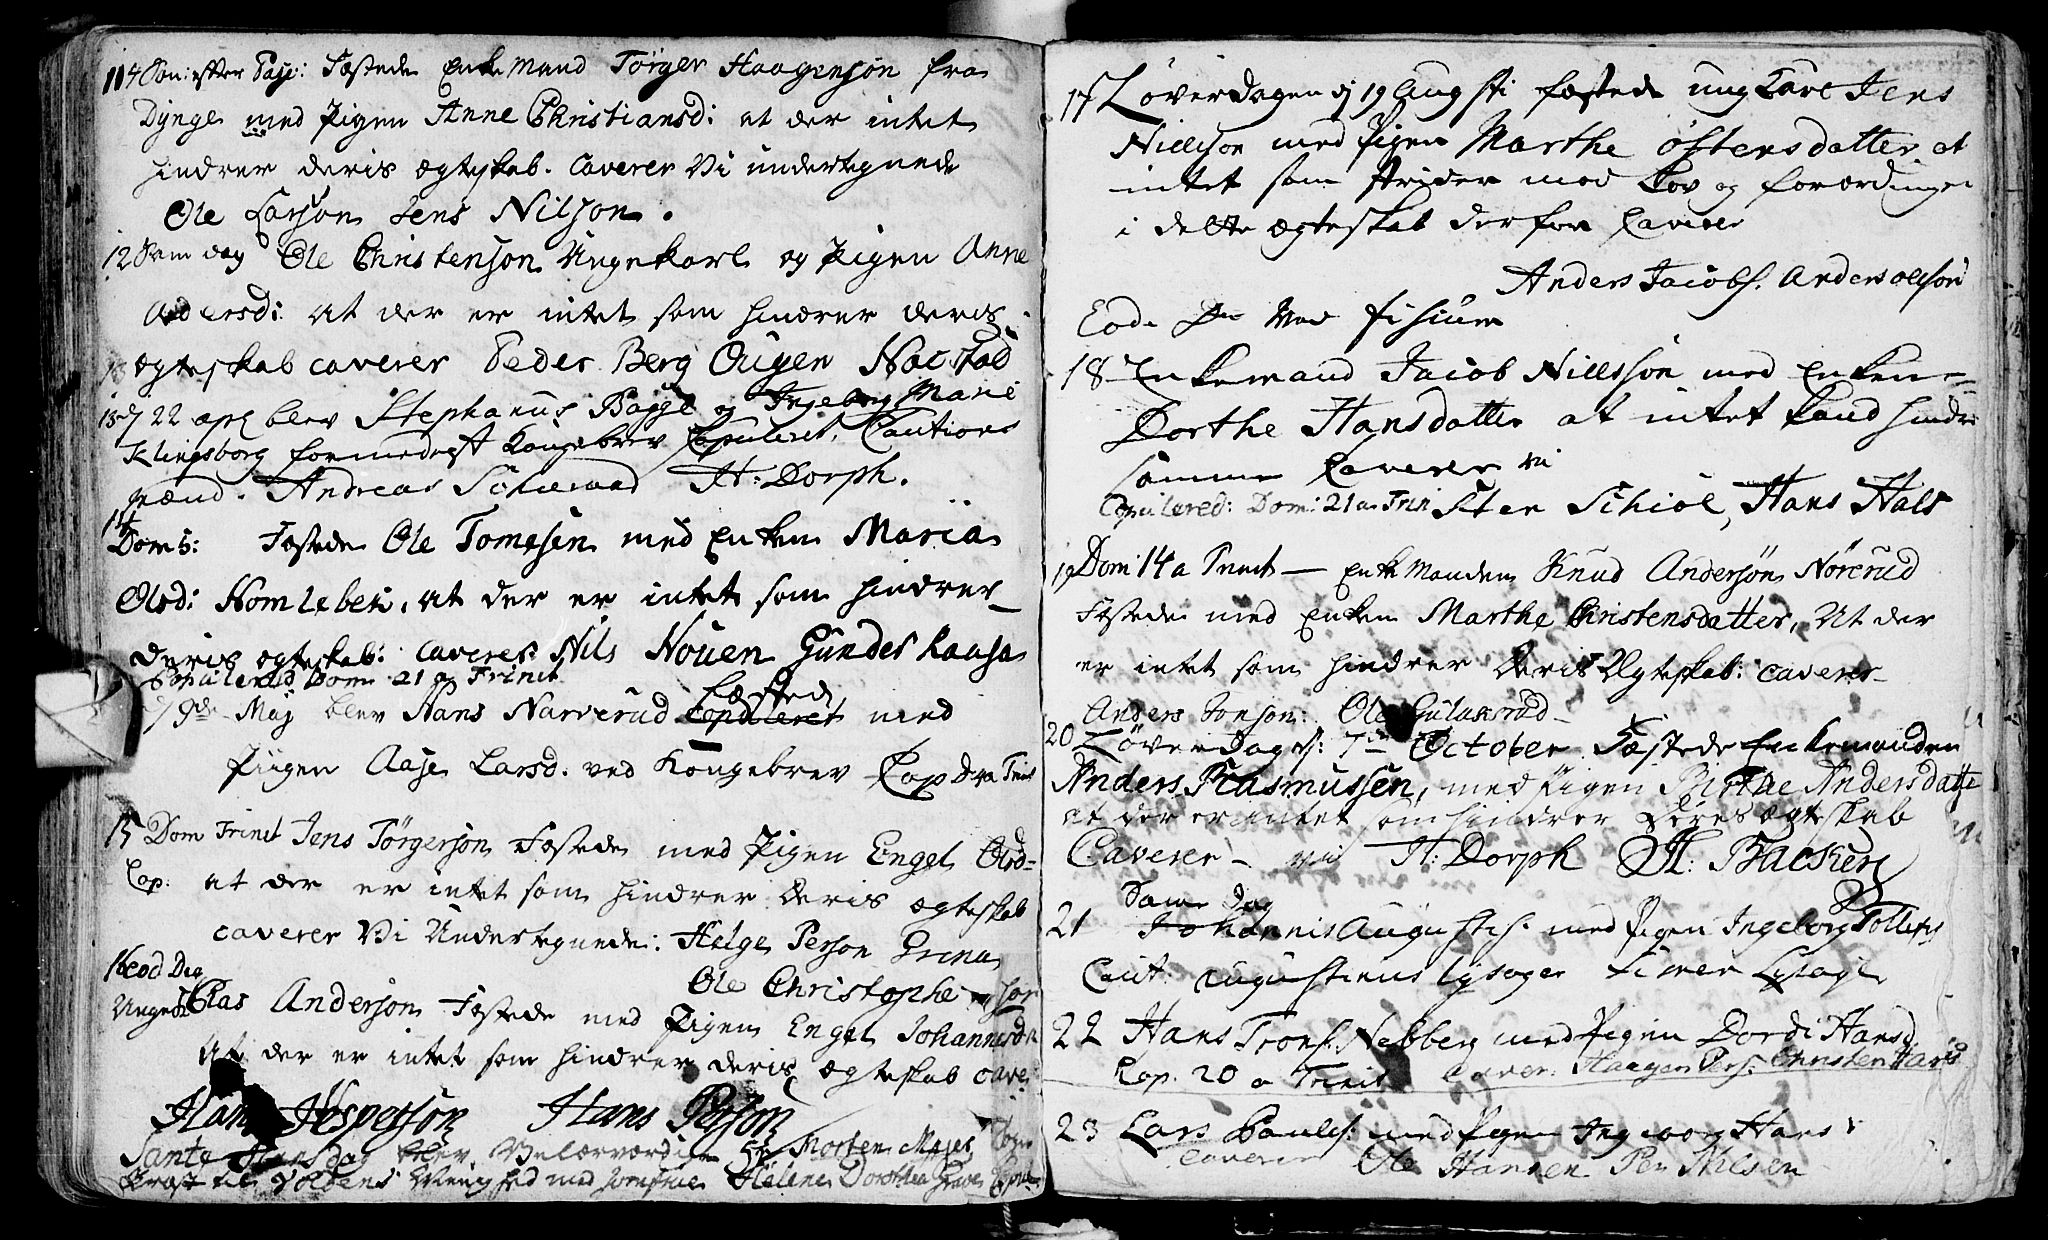 11 4 Søn: efter Pasc: Fæstede Enke Mand Törger Haagensøn fra
Dynge med Pigen Anne Christiansd: at der intet
hindrer deris ægteskab. Caverer Vi undertegnede
Ole Larson Jens Nilson.
12 Sam dag Ole Christenson Ungekarl og Pigen Anne
Andersd: at der er intet som hindrer deris
ægteskab caverer Peder Berg Ougen Nocstad
13 d 22 apl blev Stephanus Bagge og Ingeborg Marie
Klingsborg formedelst Kongebrev Copuleret. Cautions
mænd. Andreas H: Dorph.
14 Dom 5: Fæstede Ole Tomesen med Enken Maria
Olsd: Homleben, at der er intet som hindrer
deris ægteskab: caverer Nils Nouen Gunder Kaasa
Copulered Dom 21 a Trinit
Fæstede
d 9de Maj blev Hans Narverud Copuleret med
Piigen Aase Larsd. ved Kongebrev Cop Trinit
15 Dom Trinit Jens Törgerson Fæstede med Pigen Engel Olsd
Cop: at der er intet som hindrer deris ægteskab
caverer Vi Undertegnede: Helge Person Grena
Ole Christophe
16 eod Die
Ungek Clas Anderson Fæstede med Pigen Engel Johannesd
At der er intet som hindrer deris ægteskab cave
Hans Jesperson Hans Person
Sante Hansdag blev Velærværdige Hr Morten Mejer Sogne
Præst til Voldens Menighed med Jomfrue Helene Dorothea
17 Løverdagen d 19 Augsti fæstede ung Karl Jens
Nillson med Pigen Marthe Östensdatter at
intet som strider mod Lov og forordninger
i dette ægteskab derfor Caverer
Anders Jacobs. Anders Olson
Eod. Die
18 Enkemand Jacob Nillsson med Enken
Dorthe Hansdatter at intet kand hindre
samme Caverer vi
Copulered: Dom: 21 a Trin Sten Schiöl, Hans Hals
19 Dom 14 a Trinit — Enke Manden Knud Andersøn Nörerud
Fæstede med Enken Marthe Christensdatter, At der
er intet som hindrer Deris Ægteskab: caverer
Anders Jonson: Ole Gulaksrud
20 Löverdag d: 7de October Fæstede Enkemanden
Anders Rasmussen, med Pigen Birthe Andersdatte
at der er intet som hindrer Deres ægteskab
Caverer — vii H: Dorph H: Backer
Same Dag
21 Johannis Augustis. med Pigen Ingeborg Tollefs
Caut: Augustinus Lysager Lysager
22 Hans Trons. Nebberg med Pigen Dordi Hansd
Cop. 20 a Trinit Caver: Haagen Pers: Christen Hans
23 Lars Pauls: med Pigen Ingeborg Hans
Caverer Ole Hansen Per Nilsen